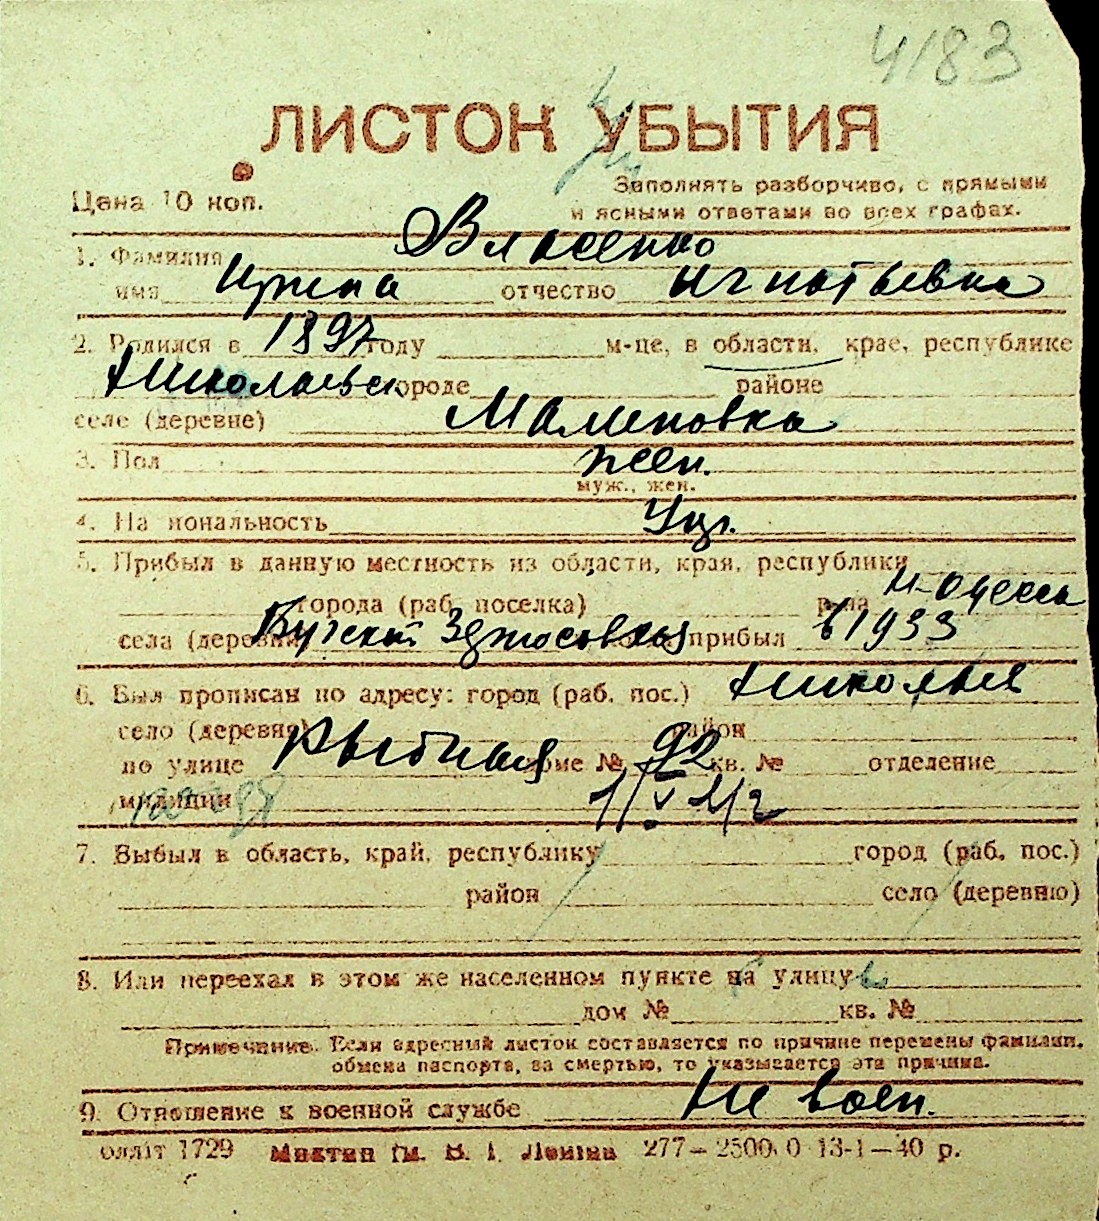 4183
ЛИСТОК УБЫТИЯ
Цена 10 коп.
Заполнять разборчиво, с прямыми
и ясными ответами во всех графах.
1. Фамилия Власенко
имя Ирина отчество Игнатьевна
2. Родился в 1897 году м-це, в области, крае, республике
Николаевск городе районе
селе (деревне) Маменовка
3. Пол жен.
муж., жен.
4. Национальность Укр.
5. Прибыл в данную местность из области, края, республики
города (раб. поселка) р-на Н-Одесса
села (деревни) прибыл в 1933
6. Был прописан по адресу: город (раб. пос.) Николаев
село (деревня) район
по улице Рыбная доме № 92 кв. № отделение
милиции 1/V 42
7. Выбыл в область, край, республику город (раб. пос.)
район село (деревню)
8. Или переехал в этом же населенном пункте на улицу
дом № кв. №
Примечание. Если адресный листок составляется по причине перемены фамилии,
обмена паспорта, за смертью, то указывается эта причина.
9. Отношение к военной службе Не воен.
олліт 1729 ім. В. І. Леніна 277—2500.0 13-1—40 р.